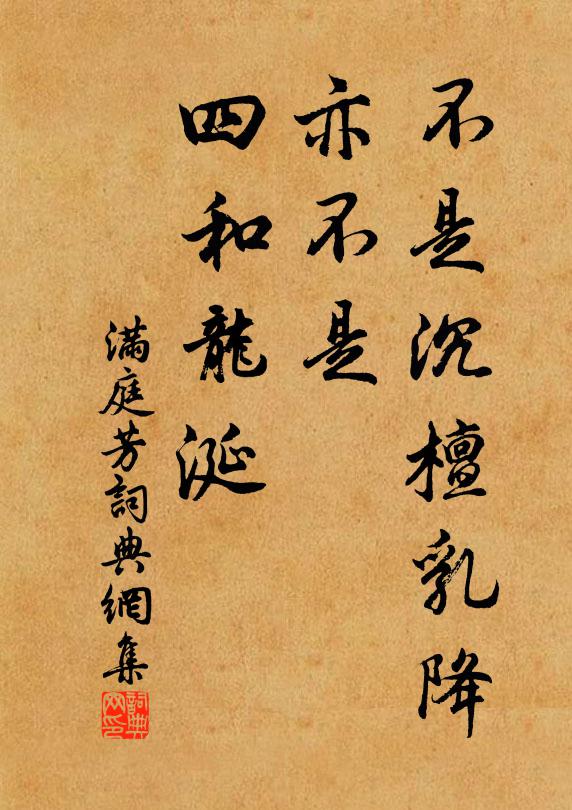 不是沉檀乳降
亦不是
四和龍涎
滿庭芳詞典網集
詞典网印